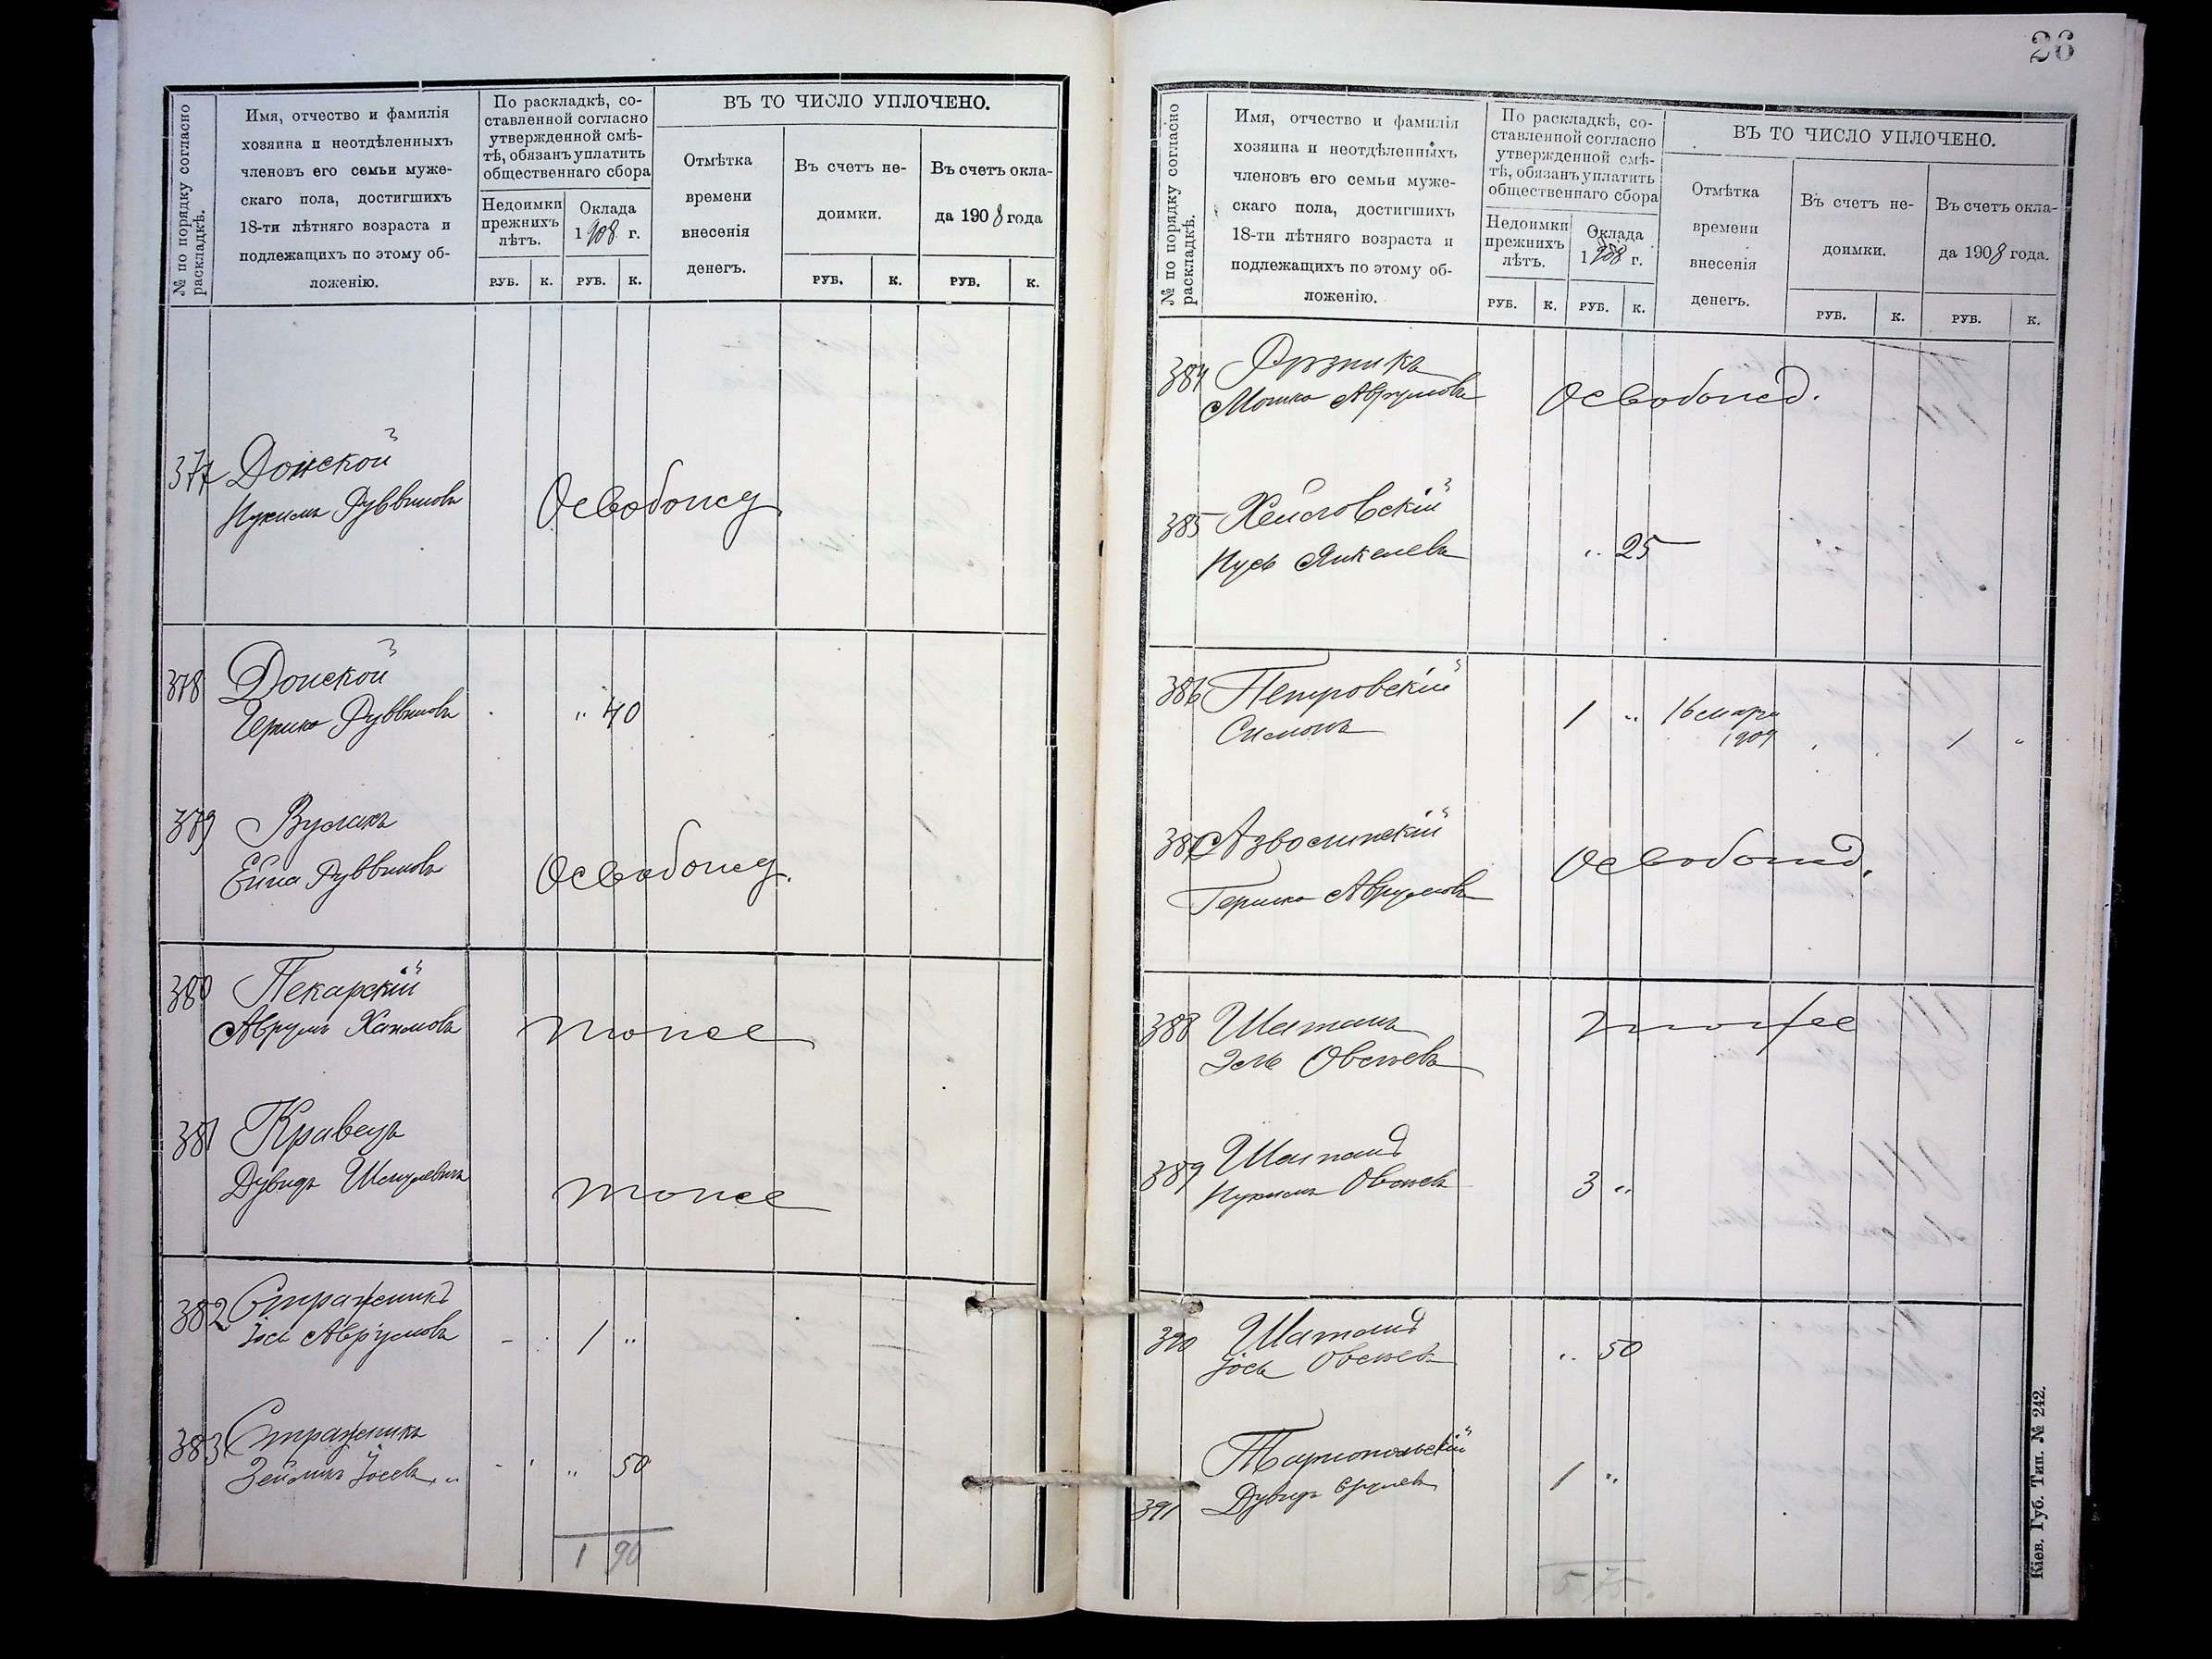 № по порядку согласно раскладкѣ.
Имя, отчество и фамилія
хозяина и неотдѣленныхъ
членовъ его семьи муже-
скаго пола, достигшихъ
18-ти лѣтняго возраста и
подлежащихъ по этому об-
ложенію.
По раскладкѣ, со-
ставленной согласно
утвержденной смѣ-
тѣ, обязанъ уплатить
общественнаго сбора
Недоимки
прежнихъ
лѣтъ.
Оклада
1908 г.
РУБ. К. РУБ. К.
ВЪ ТО ЧИСЛО УПЛОЧЕНО.
Отмѣтка
времени
внесенія
денегъ.
Въ счетъ не-
доимки.
Въ счетъ окла-
да 1908 года
РУБ. К. РУБ. К.
377 Донской
Нухимъ Рувиновъ Освобожд
378 Донской
Гершко Рувиновъ " 40
379
Рувиновъ Освобожд.
380 Пекарскій
Аврумъ Хаимовъ тоже
381 Кравецъ
Дувидъ Шмулевичъ тоже
382 Стражникъ
Іось Аврумовъ - 1 "
383 Стражникъ
Зейликъ Іосевъ " 50
1 90
26
№ по порядку согласно раскладкѣ.
Имя, отчество и фамилія
хозяина и неотдѣленныхъ
членовъ его семьи муже-
скаго пола, достигшихъ
18-ти лѣтняго возраста и
подлежащихъ по этому об-
ложенію.
По раскладкѣ, со-
ставленной согласно
утвержденной смѣ-
тѣ, обязанъ уплатить
общественнаго сбора
Недоимки
прежнихъ
лѣтъ.
Оклада
1908 г.
РУБ. К. РУБ. К.
ВЪ ТО ЧИСЛО УПЛОЧЕНО.
Отмѣтка
времени
внесенія
денегъ.
Въ счетъ не-
доимки.
Въ счетъ окла-
да 1908 года.
РУБ. К. РУБ. К.
384 Рѣзникъ
Мошко Аврумовъ Освобожд.
385
Нусь Янкелевъ " 25
386 Петровскій
Симонъ 1 " 16 марта
1909 1 "
387
Гершко Аврумовъ Освобожд.
388
Овсеевъ тоже
389
Нухимъ Овсеевъ 3 "
390
Іось Овсеевъ " 50
Тарнопольскій
391 Дувидъ Срулевъ 1 "
5 75
Кіев. Губ. Тип. № 242.